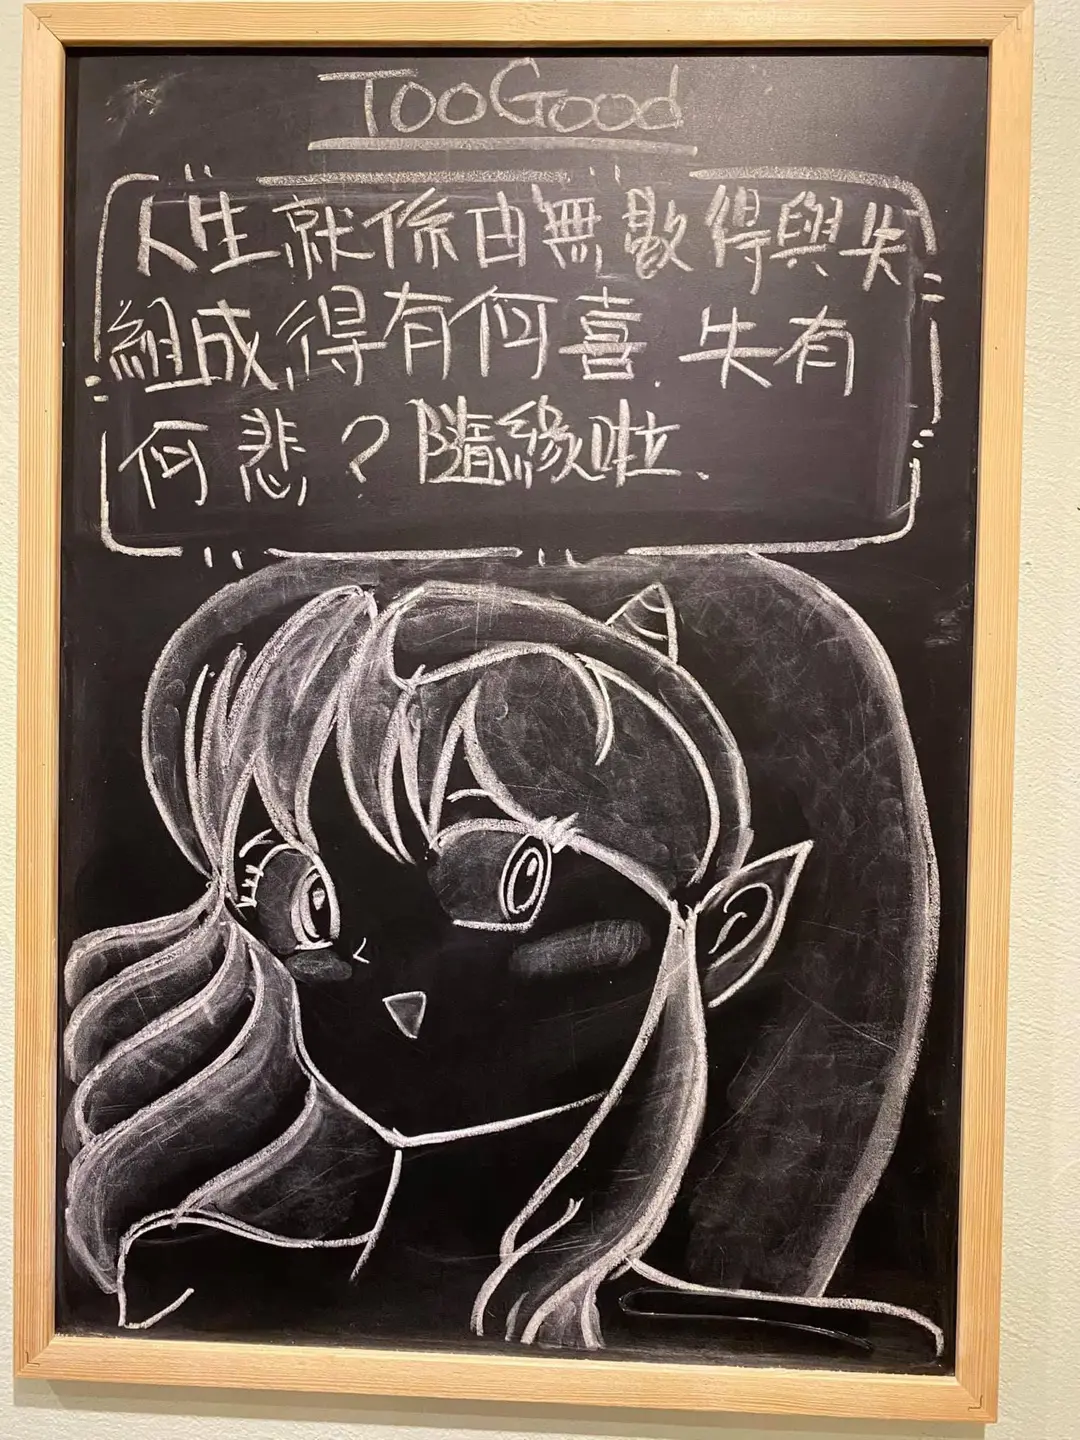 TooGood
人生就係由無數得與失
組成,得有何喜.失有
何悲?隨緣啦.